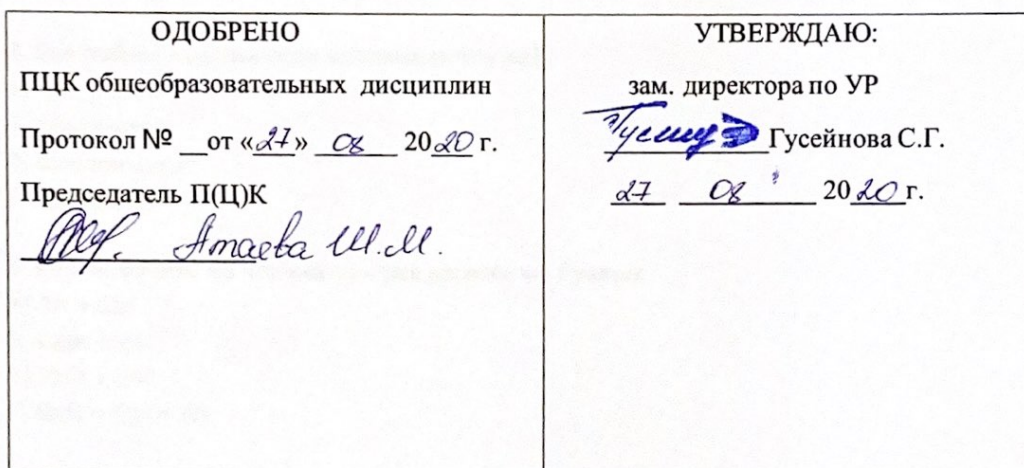 ОДОБРЕНО
ПЦК общеобразовательных дисциплин
Протокол № __от «27» 08 2020 г.
Председатель П(Ц)К
Атаева Ш.М.
УТВЕРЖДАЮ:
зам. директора по УР
Гусейнова С.Г.
27 08 2020 г.